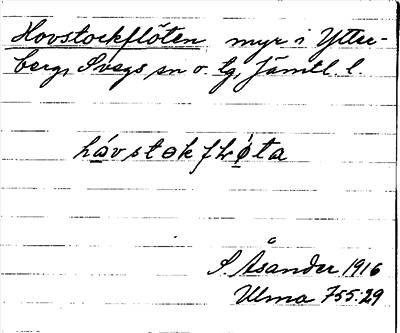 Hovstockflöten myr i Ytter-
berg, Svegs sn o. tg, Jämtl. l.
håvstokfLö̀ta
S. Åsander 1916
Ulma 755:29